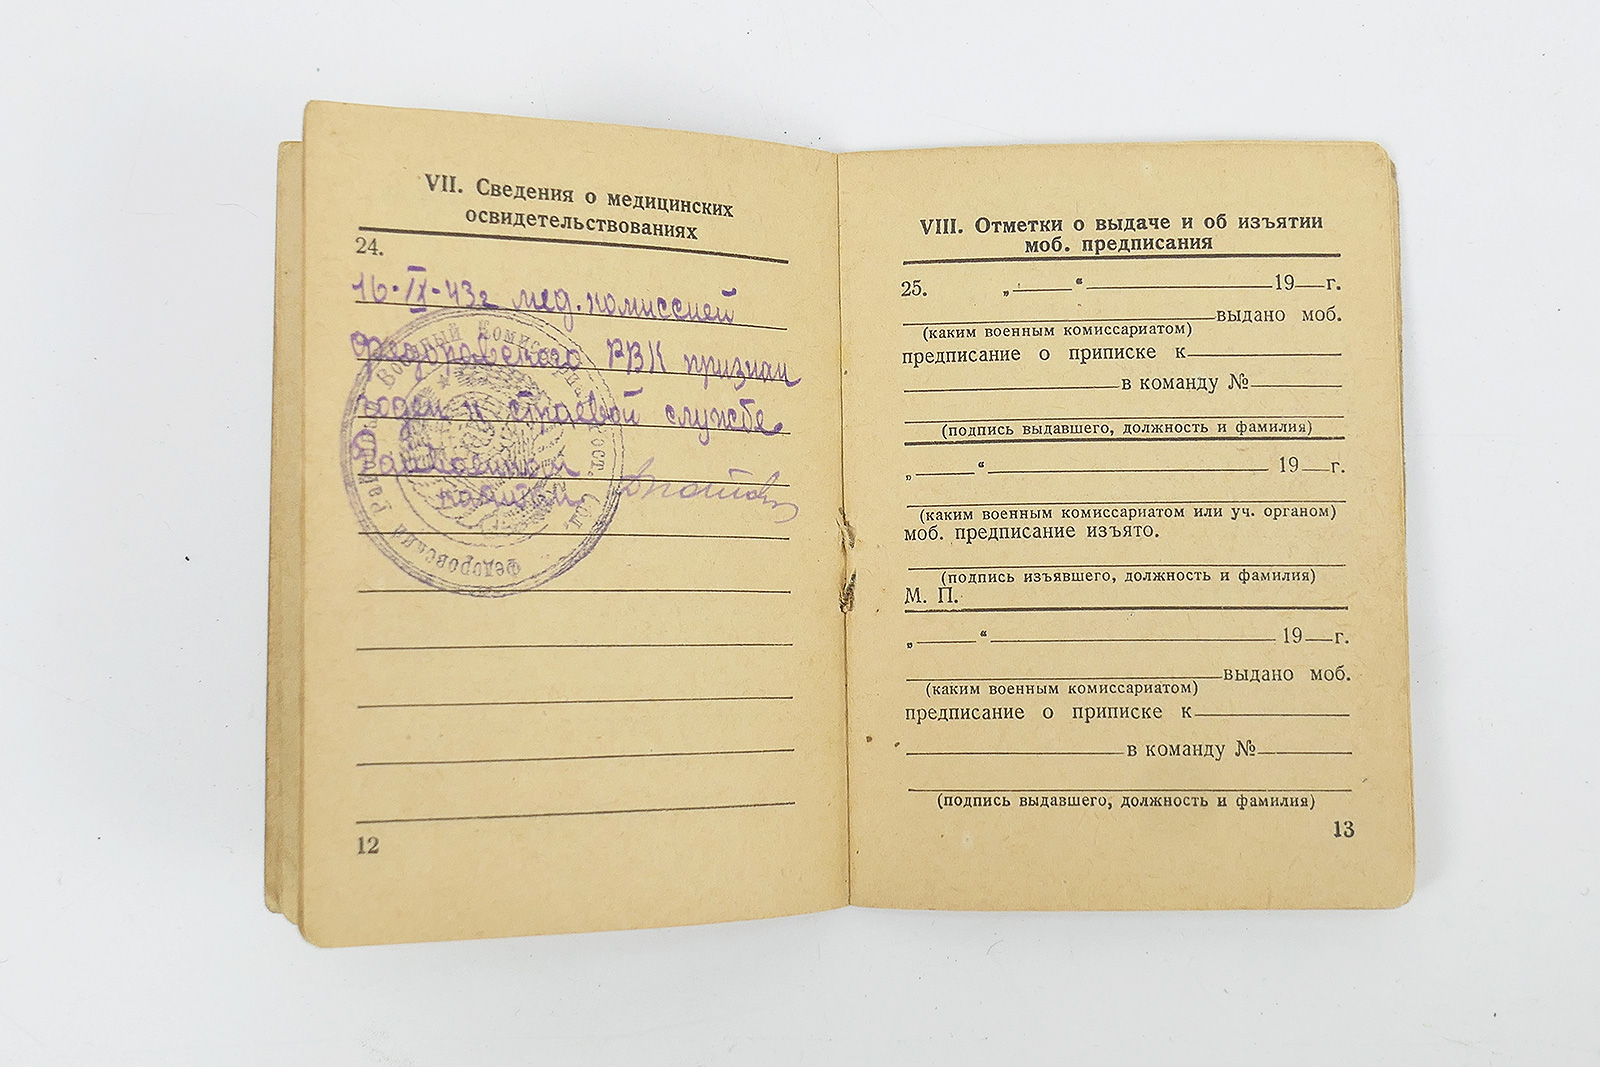 VII. Сведения о медицинских
освидетельствованиях
24.
16-IX-43г мед. комиссией
Федоровского РВК признан
годен к строевой службе
Федоровский Районный Военный Комиссариат
VIII. Отметки о выдаче и об изъятии
моб. предписания
25. „ “ 19 г.
выдано моб.
(каким военным комиссариатом)
предписание о приписке к
в команду №
(подпись выдавшего, должность и фамилия)
„ “ 19 г.
(каким военным комиссариатом или уч. органом)
моб. предписание изъято.
(подпись изъявшего, должность и фамилия)
М. П.
„ “ 19 г.
выдано моб.
(каким военным комиссариатом)
предписание о приписке к
в команду №
(подпись выдавшего, должность и фамилия)
12
13